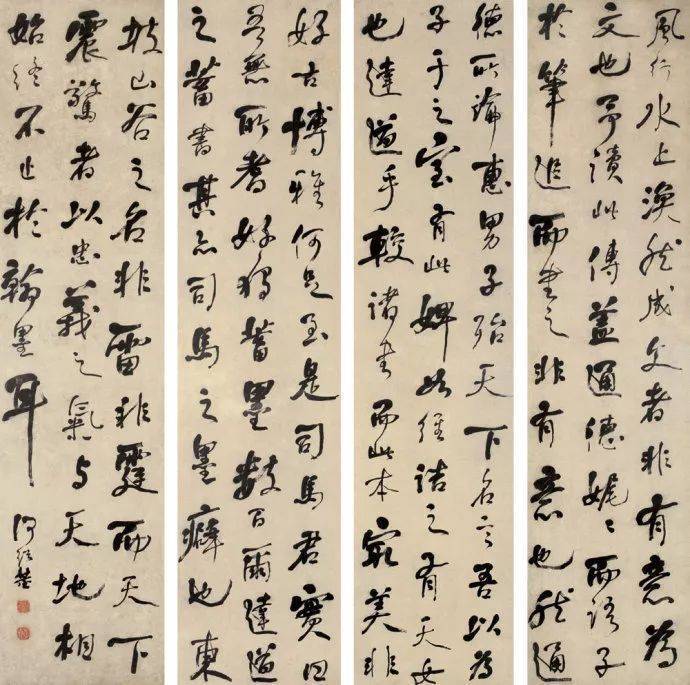 風行水上渙然成文者非有意為
文也予讀此傳蓋通德娓〻而語子
於筆追而書之非有意也然通
德所論惠男子殆天下名言吾以為
子于之室有此婢如維詰之有天女
也達道手較諸書而此本最美非
好古博雅何足至是司馬君實曰
吾無所嗜好獨蓄墨數百爾達道
之蓄書甚亦司馬之墨癖也東
坡山谷之名非雷非霆而天下
震驚者以忠義之氣与天地相
始終不止於翰墨耳
何紹基